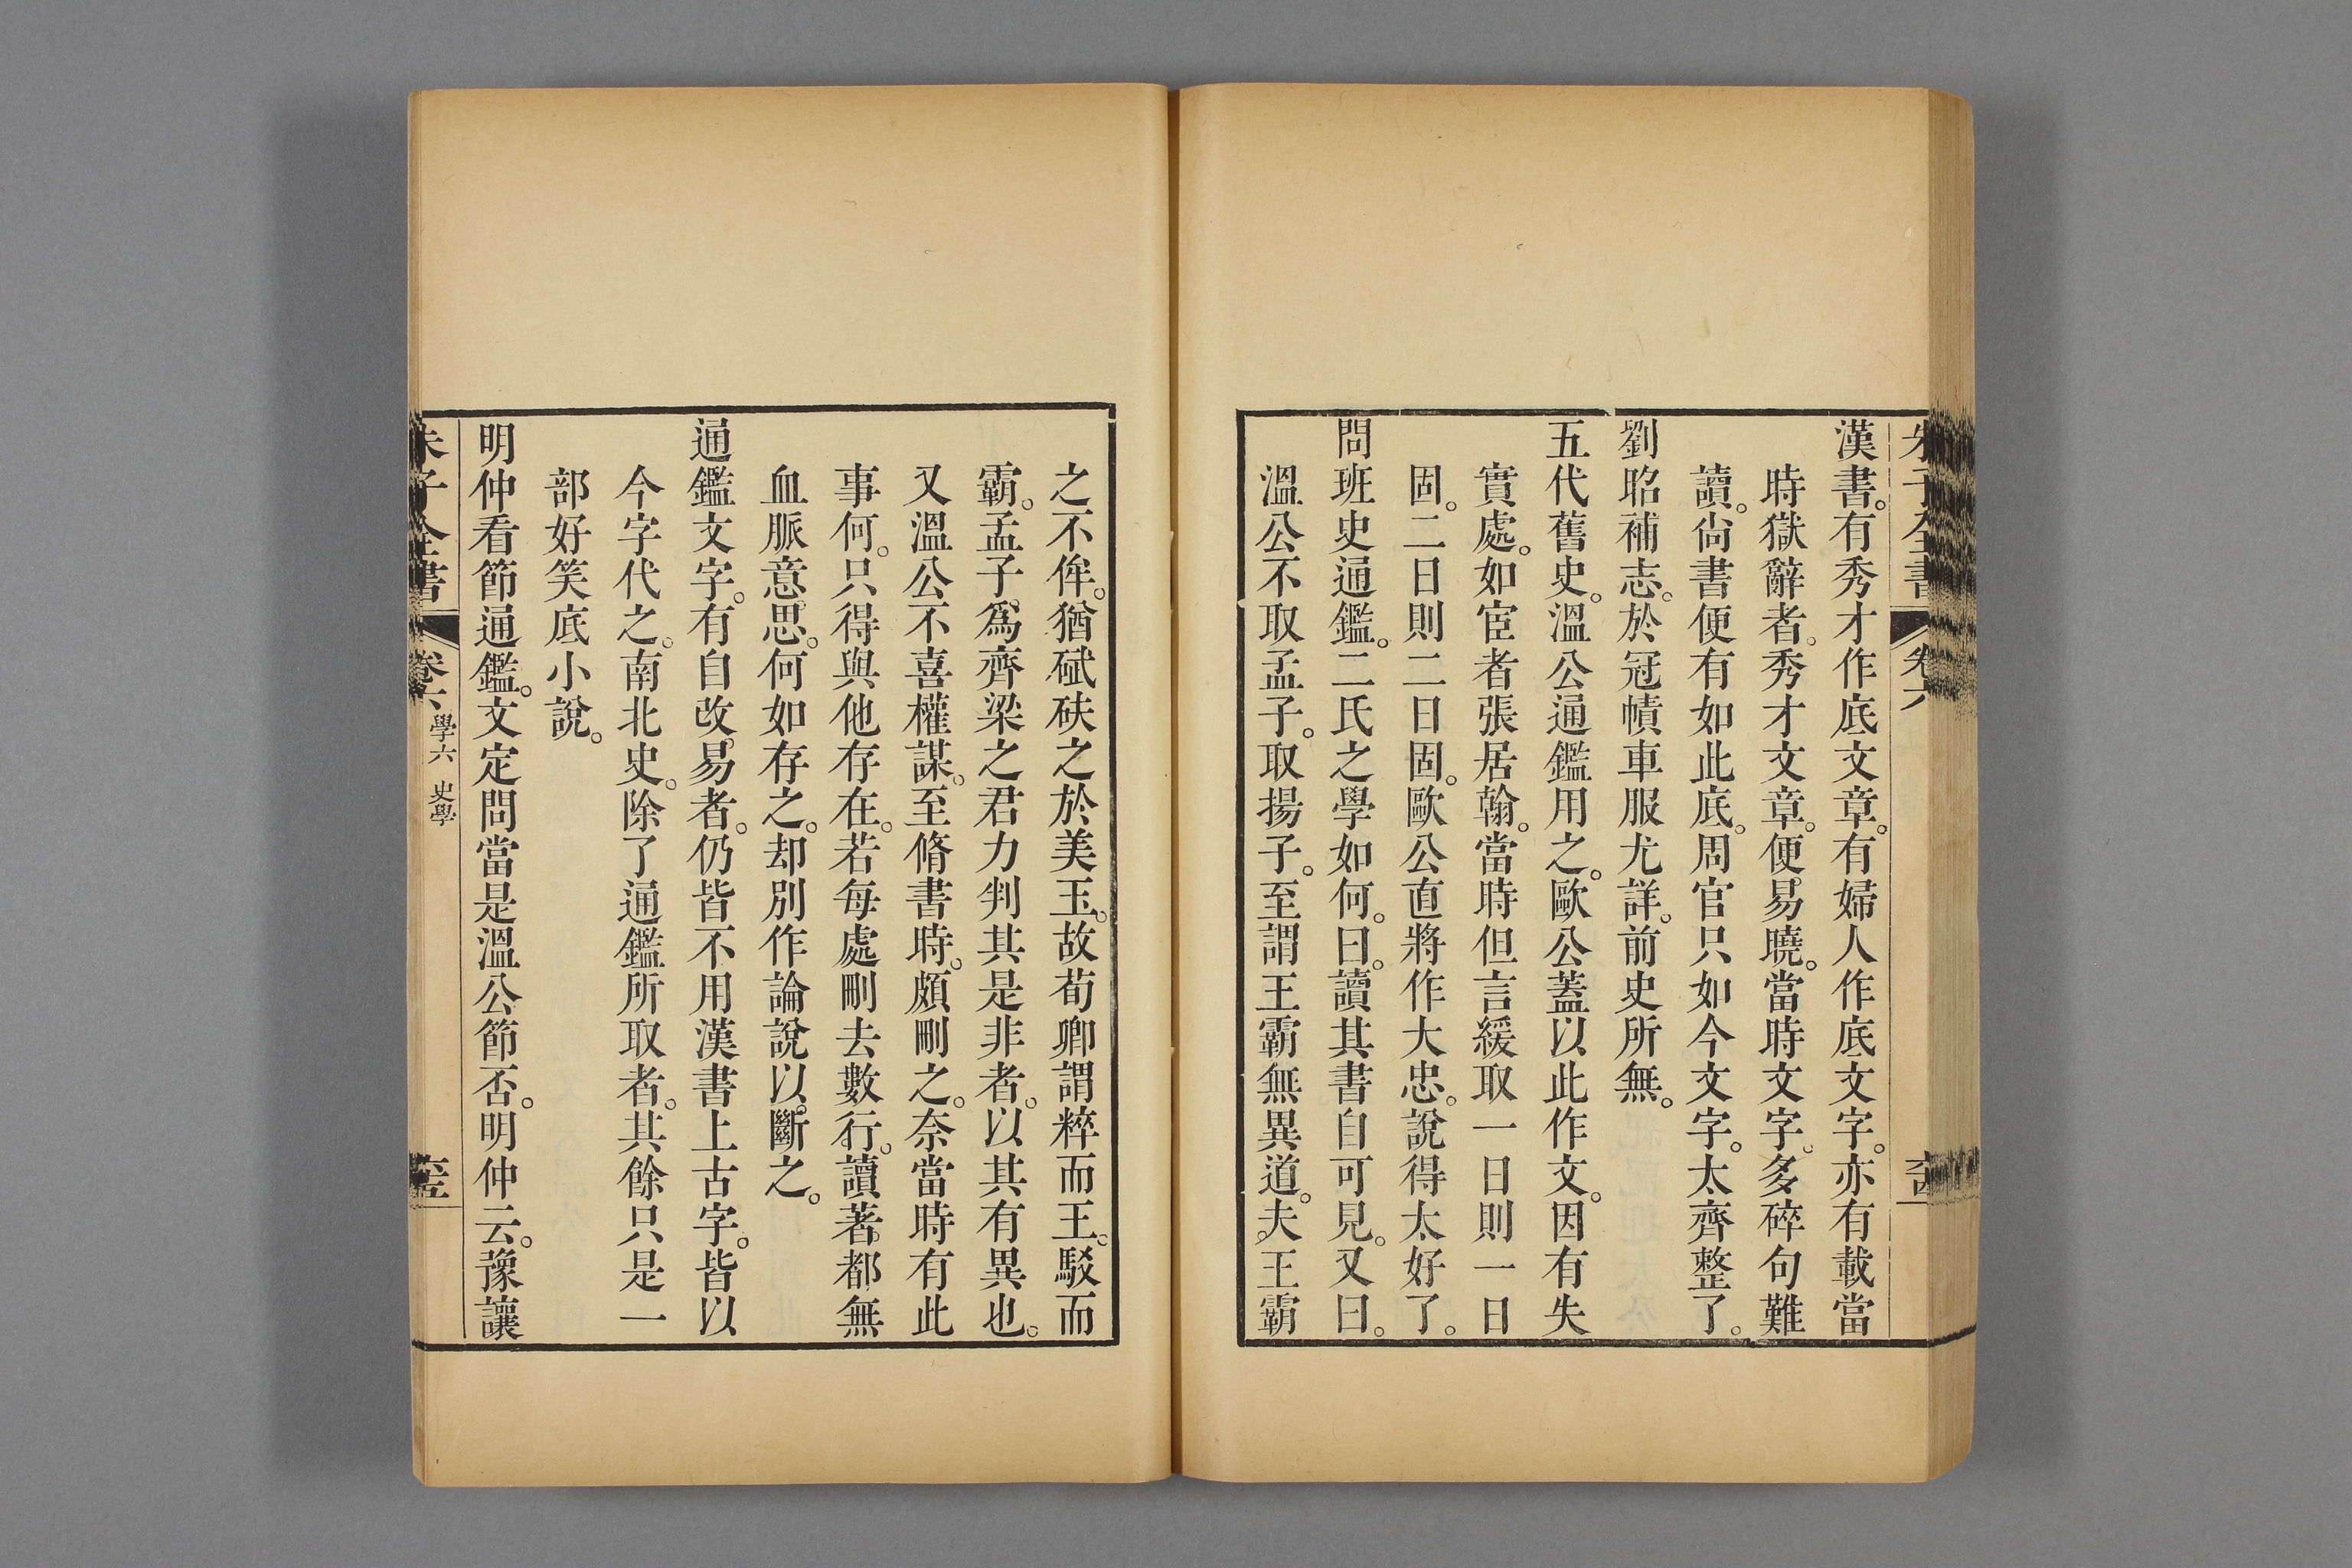 漢書。有秀才作底文章。有婦人作底文字。亦有載當
時獄辭者。秀才文章。便易曉。當時文字。多碎句難
讀。尙書便有如此底。周官只如今文字。太齊整了。
劉昭補志。於冠幘車服尤詳。前史所無。
五代舊史。溫公通鑑用之。歐公蓋以此作文。因有失
實處。如宦者張居翰。當時但言緩取一日則一日
固。二日則二日固。歐公直將作大忠。說得太好了。
問班史通鑑。二氏之學如何。曰。讀其書自可見。又曰。
溫公不取孟子。取揚子。至謂王霸無異道。夫王霸
之不侔。猶碔砆之於美玉。故荀卿謂粹而王。駁而
霸。孟子爲齊梁之君力判其是非者。以其有異也。
又溫公不喜權謀。至脩書時。頗刪之。奈當時有此
事何。只得與他存在。若每處刪去數行。讀著都無
血脈意思。何如存之。却別作論說以斷之。
通鑑文字。有自改易者。仍皆不用漢書上古字。皆以
今字代之。南北史。除了通鑑所取者。其餘只是一
部好笑底小說。
明仲看節通鑑。文定問當是溫公節否。明仲云。豫讓
朱子全書
卷六
學六
史學